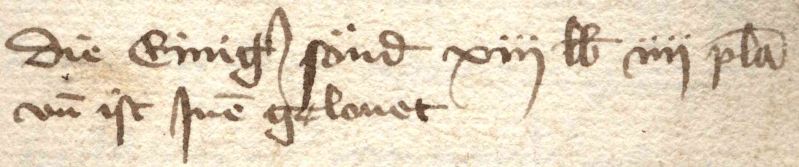 Die Einig sönd xiii lb iiii pla
vn̄ ist Jnē gelonet